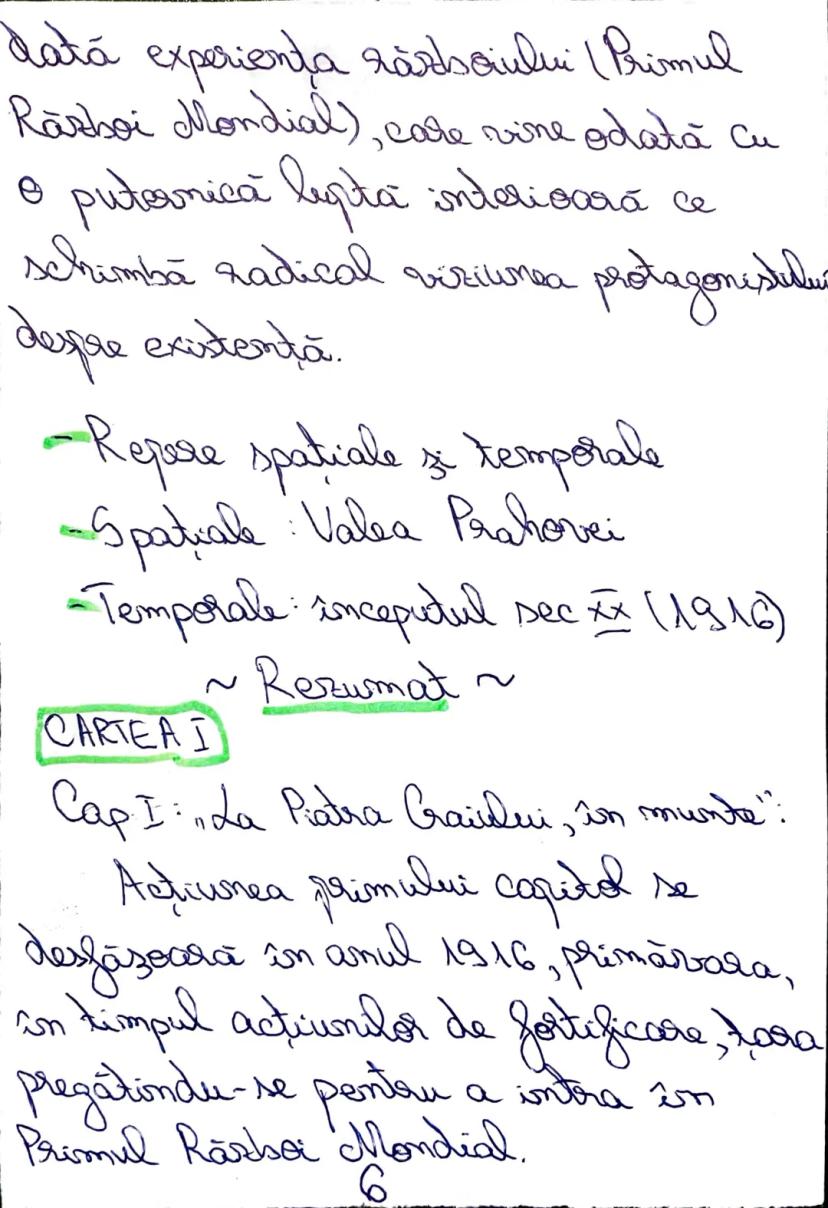 dată experiența războiului (Primul
Război Mondial), care vine odată cu
o puternică luptă interioară ce
schimbă radical viziunea protagonistului
despre existență.
- Repere spațiale și temporale
- Spațiale : Valea Prahovei
- Temporale: începutul sec XX (1916)
~ Rezumat ~
CARTEA I
Cap I: „La Piatra Craiului, în munte":
Acțiunea primului capitol se
desfășoară în anul 1916, primăvara,
în timpul acțiunilor de fortificare, țara
pregătindu-se pentru a intra în
Primul Război Mondial.
6